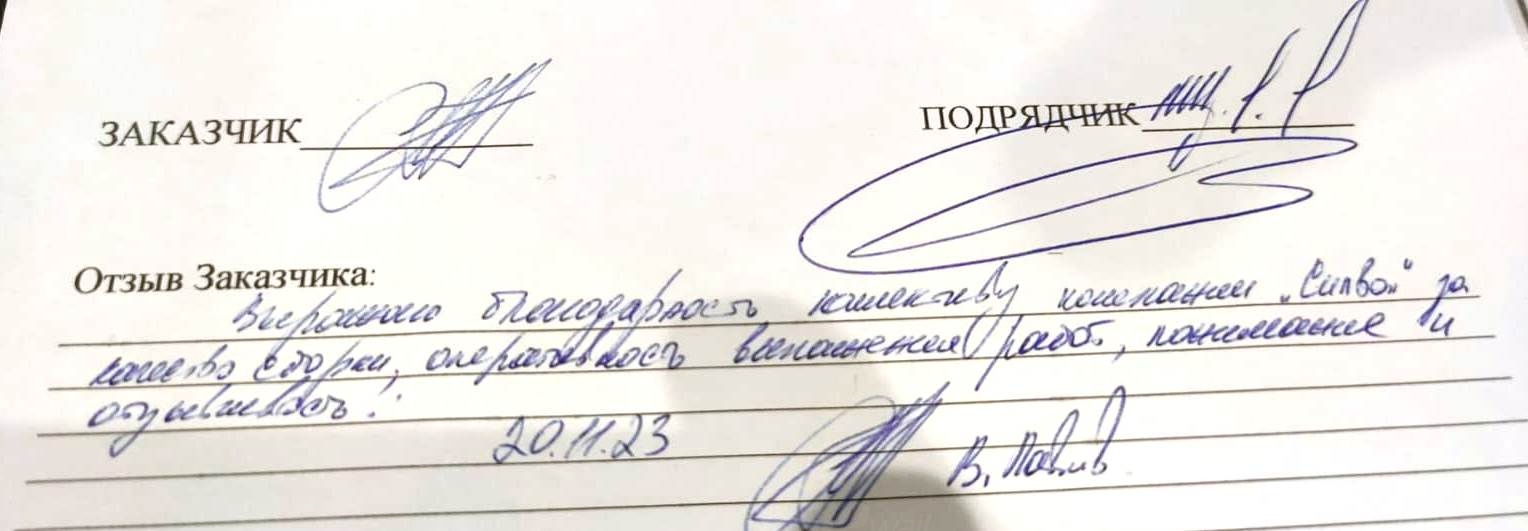 ЗАКАЗЧИК ПОДРЯДЧИК
Отзыв Заказчика:
Выражаю благодарность коллективу компании „Силва“ за
качество сборки, оперативность выполнения работ, понимание и
отзывчивость!
20.11.23 В.